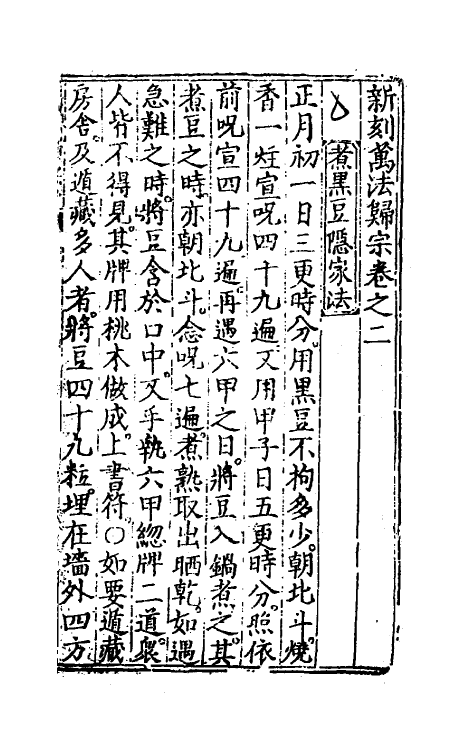 新刻萬法歸宗卷之二
煮黑豆隱家法
正月初一日三更時分。用黑豆不拘多少。朝北斗燒。
香一炷宣呪四十九遍又用甲子日五更時分。照依
前呪宣四十九遍。再遇六甲之日。將豆入鍋煮之。其
煮豆之時。亦朝北斗。念呪七遍。煮熟取出晒乾。如遇
急難之時。將豆含於口中。又手執六甲總牌二道。衆
人皆不得見。其牌用桃木做成。上書符。○如要遁藏
房舍。及遁藏多人者。將豆四十九粒。埋在墻外四方